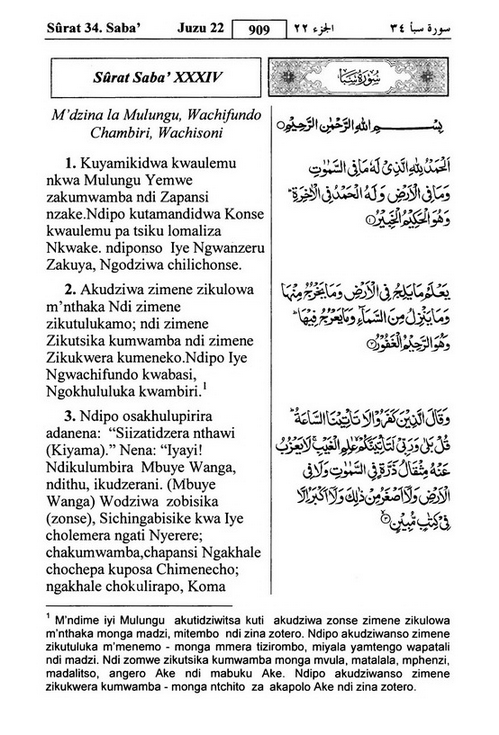 Sûrat 34. Saba’ Juzu 22 909 الجزء ٢٢ سورة سبأ ٣٤
Sûrat Saba’ XXXIV
M’dzina la Mulungu, Wachifundo
Chambiri, Wachisoni
1. Kuyamikidwa kwaulemu
nkwa Mulungu Yemwe
zakumwamba ndi Zapansi
nzake.Ndipo kutamandidwa Konse
kwaulemu pa tsiku lomaliza
Nkwake. ndiponso Iye Ngwanzeru
Zakuya, Ngodziwa chilichonse.
2. Akudziwa zimene zikulowa
m’nthaka Ndi zimene
zikutulukamo; ndi zimene
Zikutsika kumwamba ndi zimene
Zikukwera kumeneko.Ndipo Iye
Ngwachifundo kwabasi,
Ngokhululuka kwambiri.¹
3. Ndipo osakhulupirira
adanena: “Siizatidzera nthawi
(Kiyama).” Nena: “Iyayi!
Ndikulumbira Mbuye Wanga,
ndithu, ikudzerani. (Mbuye
Wanga) Wodziwa zobisika
(zonse), Sichingabisike kwa Iye
cholemera ngati Nyerere;
chakumwamba,chapansi Ngakhale
chochepa kuposa Chimenecho;
ngakhale chokulirapo, Koma
سُورَةُ سَبَإٍ
بِسْمِ اللَّهِ الرَّحْمَٰنِ الرَّحِيمِ
الْحَمْدُ لِلَّهِ الَّذِي لَهُ مَا فِي السَّمَٰوَٰتِ
وَمَا فِي الْأَرْضِ وَلَهُ الْحَمْدُ فِي الْآخِرَةِ
وَهُوَ الْحَكِيمُ الْخَبِيرُ ①
يَعْلَمُ مَا يَلِجُ فِي الْأَرْضِ وَمَا يَخْرُجُ مِنْهَا
وَمَا يَنْزِلُ مِنَ السَّمَاءِ وَمَا يَعْرُجُ فِيهَا
وَهُوَ الرَّحِيمُ الْغَفُورُ ②
وَقَالَ الَّذِينَ كَفَرُوا لَا تَأْتِينَا السَّاعَةُ
قُلْ بَلَىٰ وَرَبِّي لَتَأْتِيَنَّكُمْ عَٰلِمِ الْغَيْبِ لَا يَعْزُبُ
عَنْهُ مِثْقَالُ ذَرَّةٍ فِي السَّمَٰوَٰتِ وَلَا فِي
الْأَرْضِ وَلَا أَصْغَرُ مِنْ ذَٰلِكَ وَلَا أَكْبَرُ إِلَّا
فِي كِتَٰبٍ مُبِينٍ ③
¹ M’ndime iyi Mulungu akutidziwitsa kuti akudziwa zonse zimene zikulowa
m’nthaka monga madzi, mitembo ndi zina zotero. Ndipo akudziwanso zimene
zikutuluka m’menemo - monga mmera tizirombo, miyala yamtengo wapatali
ndi madzi. Ndi zomwe zikutsika kumwamba monga mvula, matalala, mphenzi,
madalitso, angero Ake ndi mabuku Ake. Ndipo akudziwanso zimene
zikukwera kumwamba - monga ntchito za akapolo Ake ndi zina zotero.